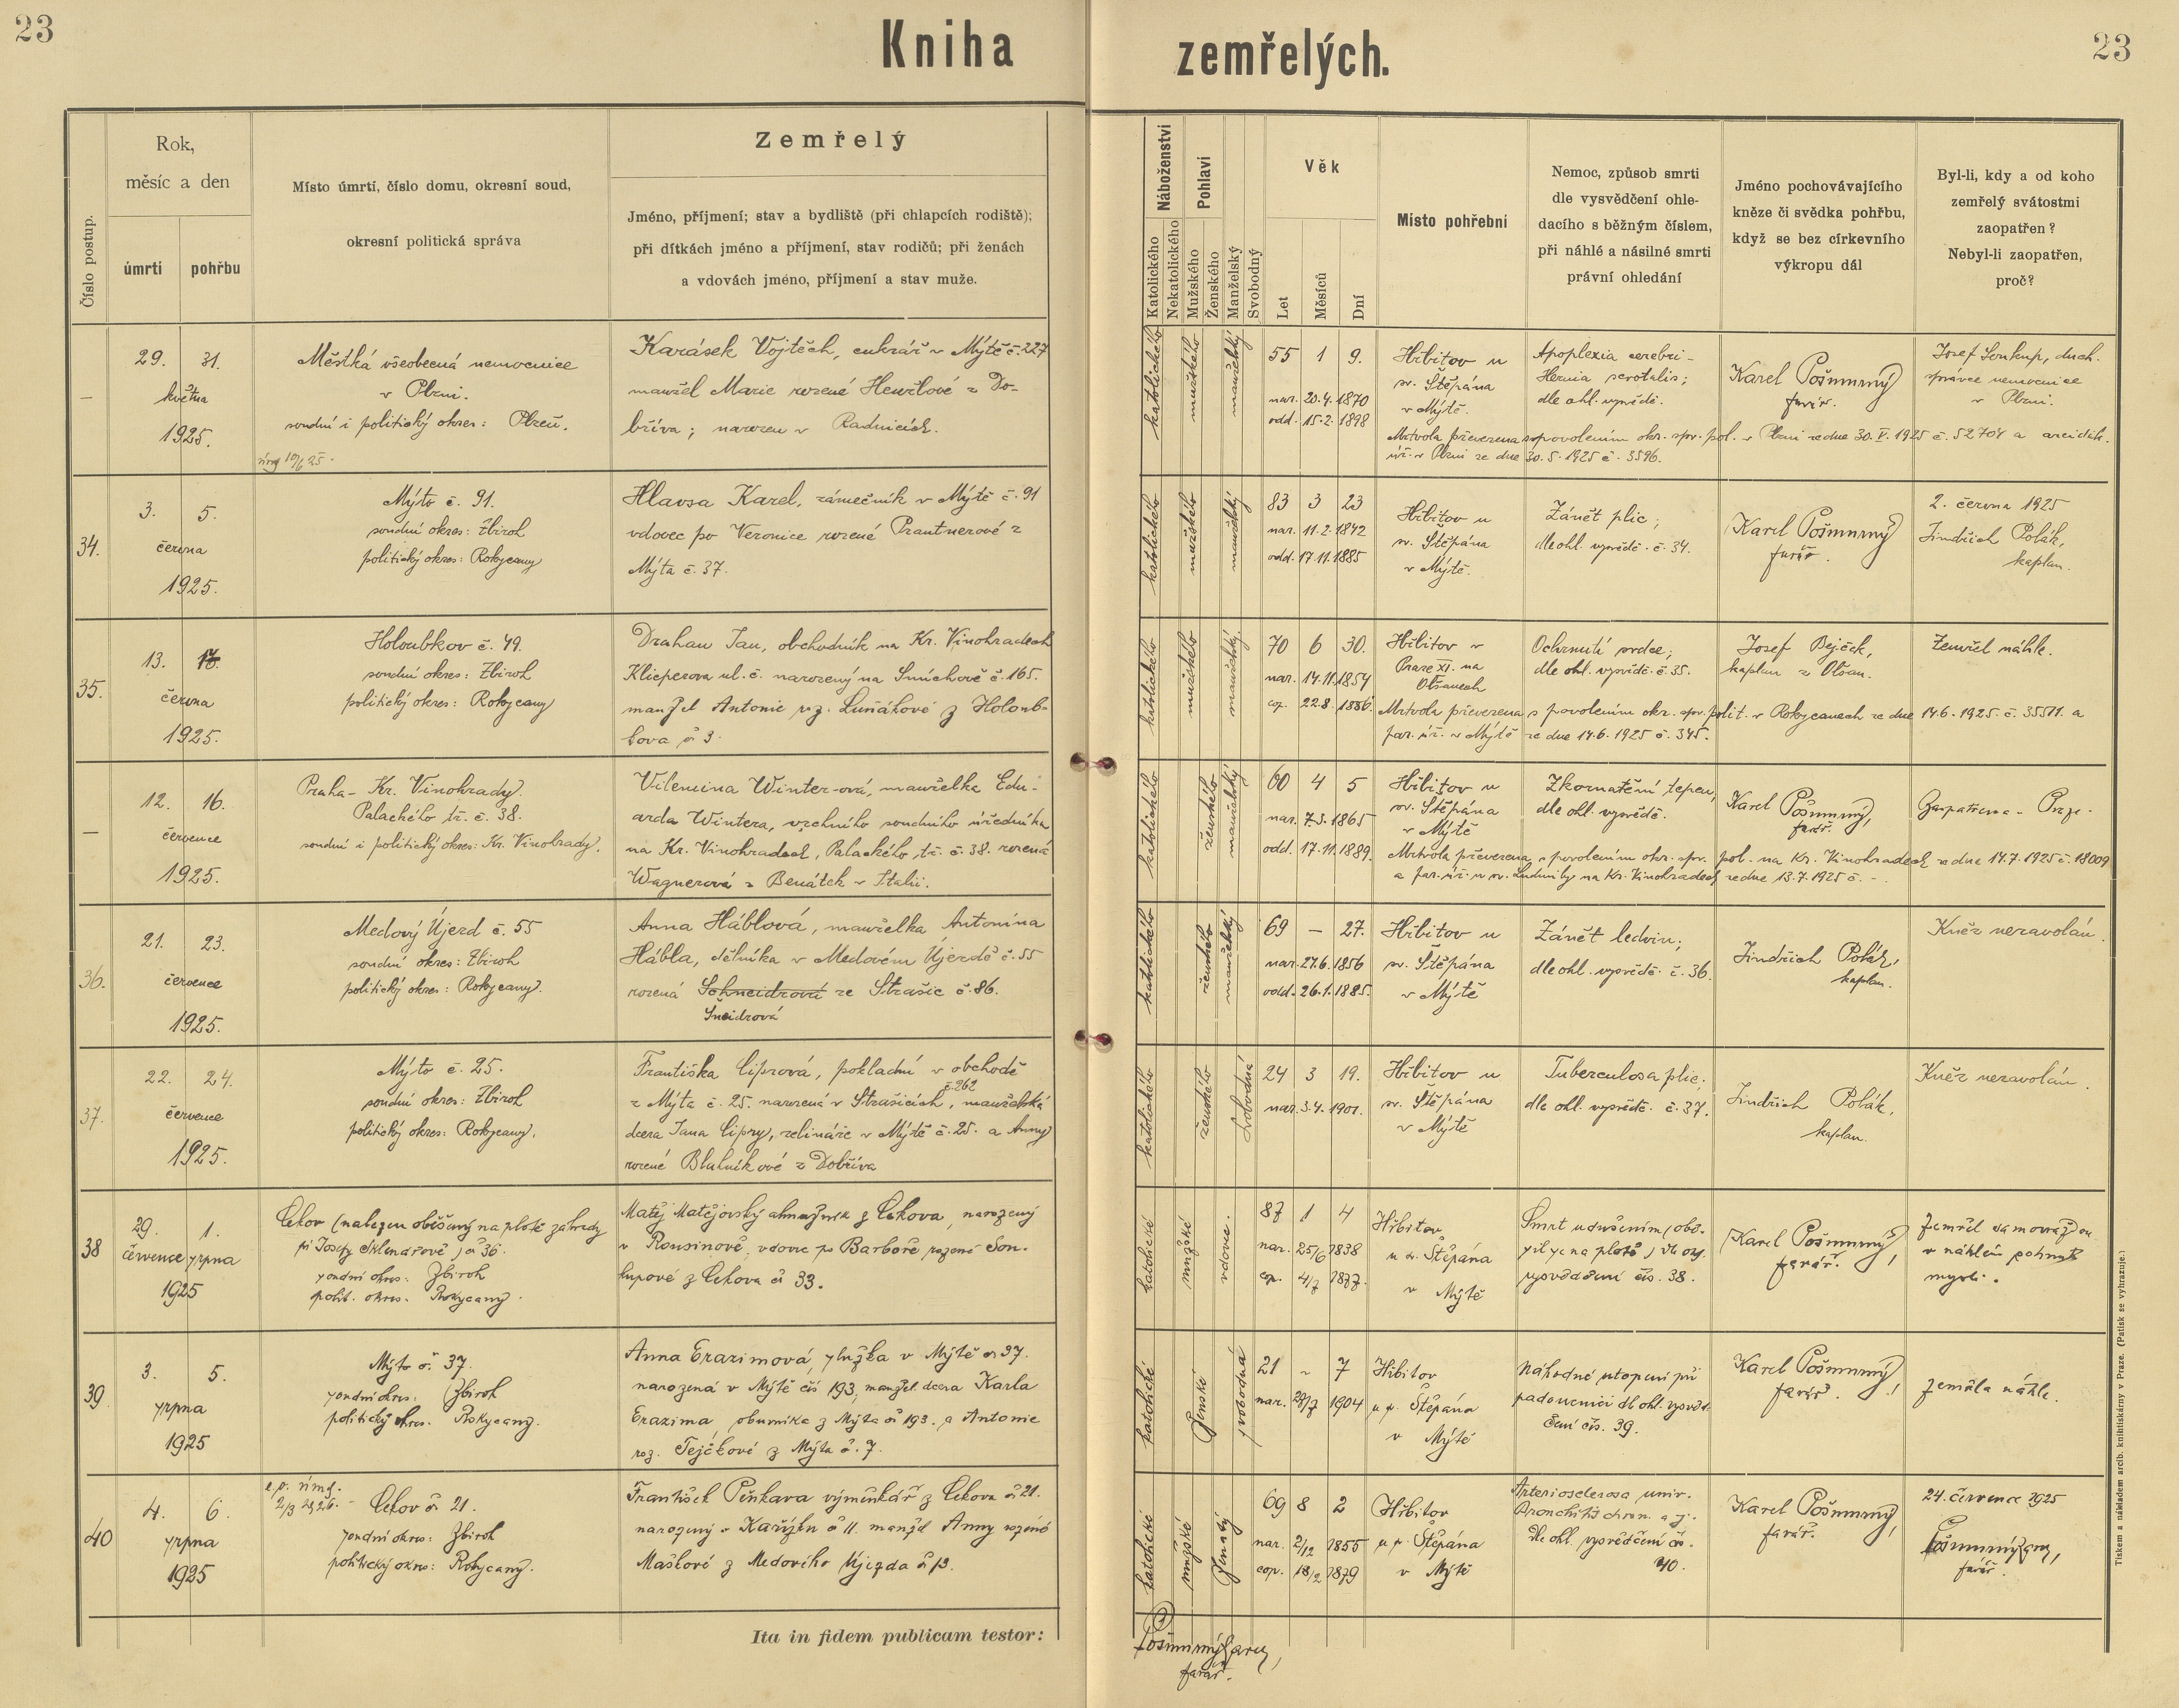 23
Kniha
zemřelých.
23
Číslo postup.
Rok,
měsíc a den
úmrtí
pohřbu
Místo úmrtí, číslo domu, okresní soud,
okresní politická správa
Zemřelý
Jméno, příjmení; stav a bydliště (při chlapcích rodiště);
při dítkách jméno a příjmení, stav rodičů; při ženách
a vdovách jméno, příjmení a stav muže.
Náboženství
Katolického
Nekatolického
Pohlaví
Mužského
Ženského
Manželský
Svobodný
Věk
Let
Měsíců
Dní
Místo pohřební
Nemoc, způsob smrti
dle vysvědčení ohle-
dacího s běžným číslem,
při náhlé a násilné smrti
právní ohledání
Jméno pochovávajícího
kněze či svědka pohřbu,
když se bez církevního
výkropu dál
Byl-li, kdy a od koho
zemřelý svátostmi
zaopatřen?
Nebyl-li zaopatřen,
proč?
—
29. 31.
května
1925.
Městká všeobecná nemocnice
v Plzni.
soudní i politický okres: Plzeň.
Karásek Vojtěch, cukrář v Mýtě č. 227
manžel Marie rozené Henžlové z Do-
bříva; narozen v Radnicích.
katolického
mužského
manželský
55 1 9.
nar. 20.4.1870
odd. 15.2.1898
Hřbitov u
sv. Štěpána
v Mýtě.
Apoplexia cerebri -
Hernia scrotalis;
dle ohl. vysvědč.
Karel Pošmurný
farář.
Josef Soukup, duch.
správce nemocnice
v Plzni.
Mrtvola převezena s povolením okr. spr. pol. v Plzni ze dne 30.V.1925 č. 52704 a arciděk.
úř. v Plzni ze dne 30.5.1925 č. 3596.
34.
3. 5.
června
1925.
Mýto č. 91.
soudní okres: Zbiroh
politický okres: Rokycany
Hlavsa Karel, zámečník v Mýtě č. 91
vdovec po Veronice rozené Prantnerové z
Mýta č. 37.
katolického
mužského
manželský
83 3 23
nar. 11.2.1842
odd. 17.11.1885
Hřbitov u
sv. Štěpána
v Mýtě.
Zánět plic;
dle ohl. vysvědč. č. 34.
Karel Pošmurný
farář.
2. června 1925
Jindřich Polák,
kaplan.
35.
13. 17.
června
1925.
Holoubkov č. 49.
soudní okres: Zbiroh
politický okres: Rokycany
Drahan Jan, obchodník na Kr. Vinohradech
Klicperova ul. č. narozený na Smíchově č. 165.
manžel Antonie roz. Luňákové z Holoub-
kova č 3.
katolického
mužského
manželský.
70 6 30.
nar. 14.11.1854
cop. 22.8. 1886.
Hřbitov v
Praze XI. na
Olšanech
Ochrnutí srdce;
dle ohl. vysvědč. č. 35.
Josef Bejček,
kaplan z Olšan.
Zemřel náhle.
Mrtvola převezena s povolením okr. spr. polit. v Rokycanech ze dne 14.6.1925. č. 35511. a
far. úř. v Mýtě ze dne 14.6.1925 č. 345.
—
12. 16.
července
1925.
Praha - Kr. Vinohrady.
Palackého tř. č. 38.
soudní i politický okres: Kr. Vinohrady.
Vilemina Winter-ová, manželka Edu-
arda Wintera, vrchního soudního úředníka
na Kr. Vinohradech, Palackého tř. č. 38. rozená
Wagnerová z Benátek v Italii.
katolického
ženského
manželský
60 4 5
nar. 7.3.1865
odd. 17.11.1889.
Hřbitov u
sv. Štěpána
v Mýtě
Zkornatění tepen,
dle ohl. vysvědč.
Karel Pošmurný,
farář.
Zaopatřena -
Mrtvola převezena s povolením okr. spr. pol. na Kr. Vinohradech ze dne 14.7.1925 č. 18009
a far. úř. u sv. Ludmily na Kr. Vinohradech ze dne 13.7.1925 č. -.
36.
21. 23.
července
1925.
Medový Újezd č. 55
soudní okres: Zbiroh
politický okres: Rokycany.
Anna Háblová, manželka Antonína
Hábla, dělníka v Medovém Újezdě č. 55
rozená Schneidrová ze Strašic č. 86.
Šneidrová
katolického
ženského
manželský
69 — 27.
nar. 27.6.1856
odd. 26.1.1885.
Hřbitov u
sv. Štěpána
v Mýtě
Zánět ledvin;
dle ohl. vysvědč. č. 36.
Jindřich Polák,
kaplan.
Kněz nezavolán.
37.
22. 24.
července
1925.
Mýto č. 25.
soudní okres: Zbiroh
politický okres: Rokycany.
Františka Ciprová, pokladní v obchodě
č. 262
z Mýta č. 25. narozená v Strašicích, manželská
dcera Jana Cipry, zelináře v Mýtě č. 25. a Anny
rozené Blulníkové z Dobříva
katolického
ženského
svobodná
24 3 19.
nar. 3.4.1901.
Hřbitov u
sv. Štěpána
v Mýtě
Tuberculosa plic;
dle ohl. vysvědč. č. 37.
Jindřich Polák,
kaplan.
Kněz nezavolán.
38
29. 1.
července srpna
1925
Cekov (nalezen oběšený na plotě zahrady
při Josefy Sklenářové) č 36.
soudní okres: Zbiroh
polit. okres. Rokycany.
Matěj Matějovský almužník z Cekova, narozený
v Rousinově, vdovec po Barboře rozené Sou-
kupové z Cekova č 33.
katolické
mužské
vdovec.
87 1 4
nar. 25/6 1838
cop. 4/7 1877.
Hřbitov
u sv. Štěpána
v Mýtě
Smrt udušením (obě-
sil se na plotě) dle osv.
vysvědčení čís. 38.
Karel Pošmurný,
farář.
Zemřel samovraždou
v náhlém pohnutí
mysli.
39
3. 5.
srpna
1925
Mýto č. 37.
soudní okres: Zbiroh
politický okres. Rokycany.
Anna Erazimová, služka v Mýtě č 37.
narozená v Mýtě čís 193, manžel. dcera Karla
Erazima, obuvníka z Mýta č 193. a Antonie
roz. Tejčkové z Mýta č. 7.
katolické
ženské
svobodná
21 - 7
nar. 28/7 1904
Hřbitov
u sv. Štěpána
v Mýtě
Náhodné utopení při
padoucnici dle ohl. vysvěd-
čení čís. 39.
Karel Pošmurný,
farář.
Zemřela náhle.
40
4. 6.
srpna
1925
Cekov č 21.
soudní okres: Zbiroh
politický okres: Rokycany.
František Pěnkava výměnkář z Cekova č 21.
narozený v Kařízku č 11. manžel Anny rozené
Maškové z Medového Újezda č 13.
katolické
mužské
ženatý
69 8 2
nar. 2/12 1855
cop. 18/2 1879
Hřbitov
u sv. Štěpána
v Mýtě
Arteriosclerosa univ.
Bronchitis chron.
Dle ohl. vysvědčení čís.
40.
Karel Pošmurný,
farář.
24. července 1925
farář.
Ita in fidem publicam testor:
farář.
Tiskem a nákladem arcib. knihtiskárny v Praze. (Patisk se vyhrazuje.)